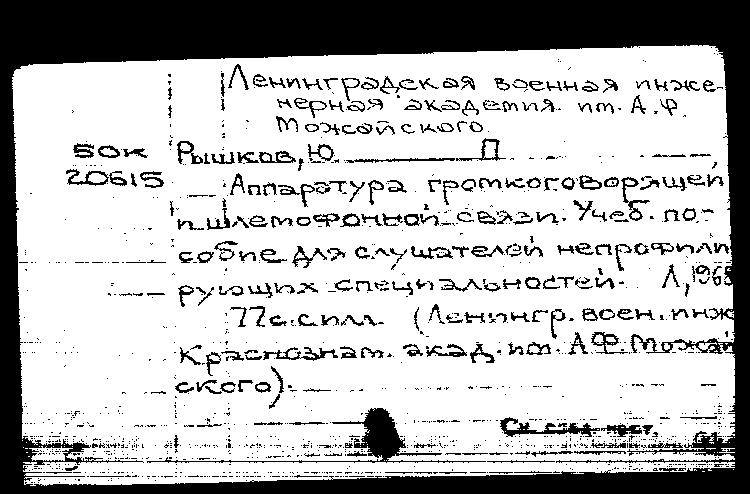 Ленинградская военная инже-
нерная академия им. А.Ф.
Можайского
50К Рышков, Ю П
20615 Аппаратура громкоговорящей
и шлемофонной связи. Учеб. по-
собие для слушателей непрофили
рующих специальностей. Л, 1968
77с. с илл. (Ленингр. воен. инж
Краснознам. акад. им. А.Ф. Можай
ского).
См. след. карт.